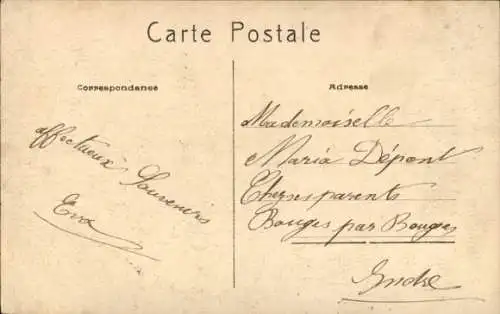 Carte Postale
Correspondance
Adresse
affectueux Souvenirs
Eva
Mademoiselle
Maria Dépont
Chez ses parents
Bouges par Bouges
Indre